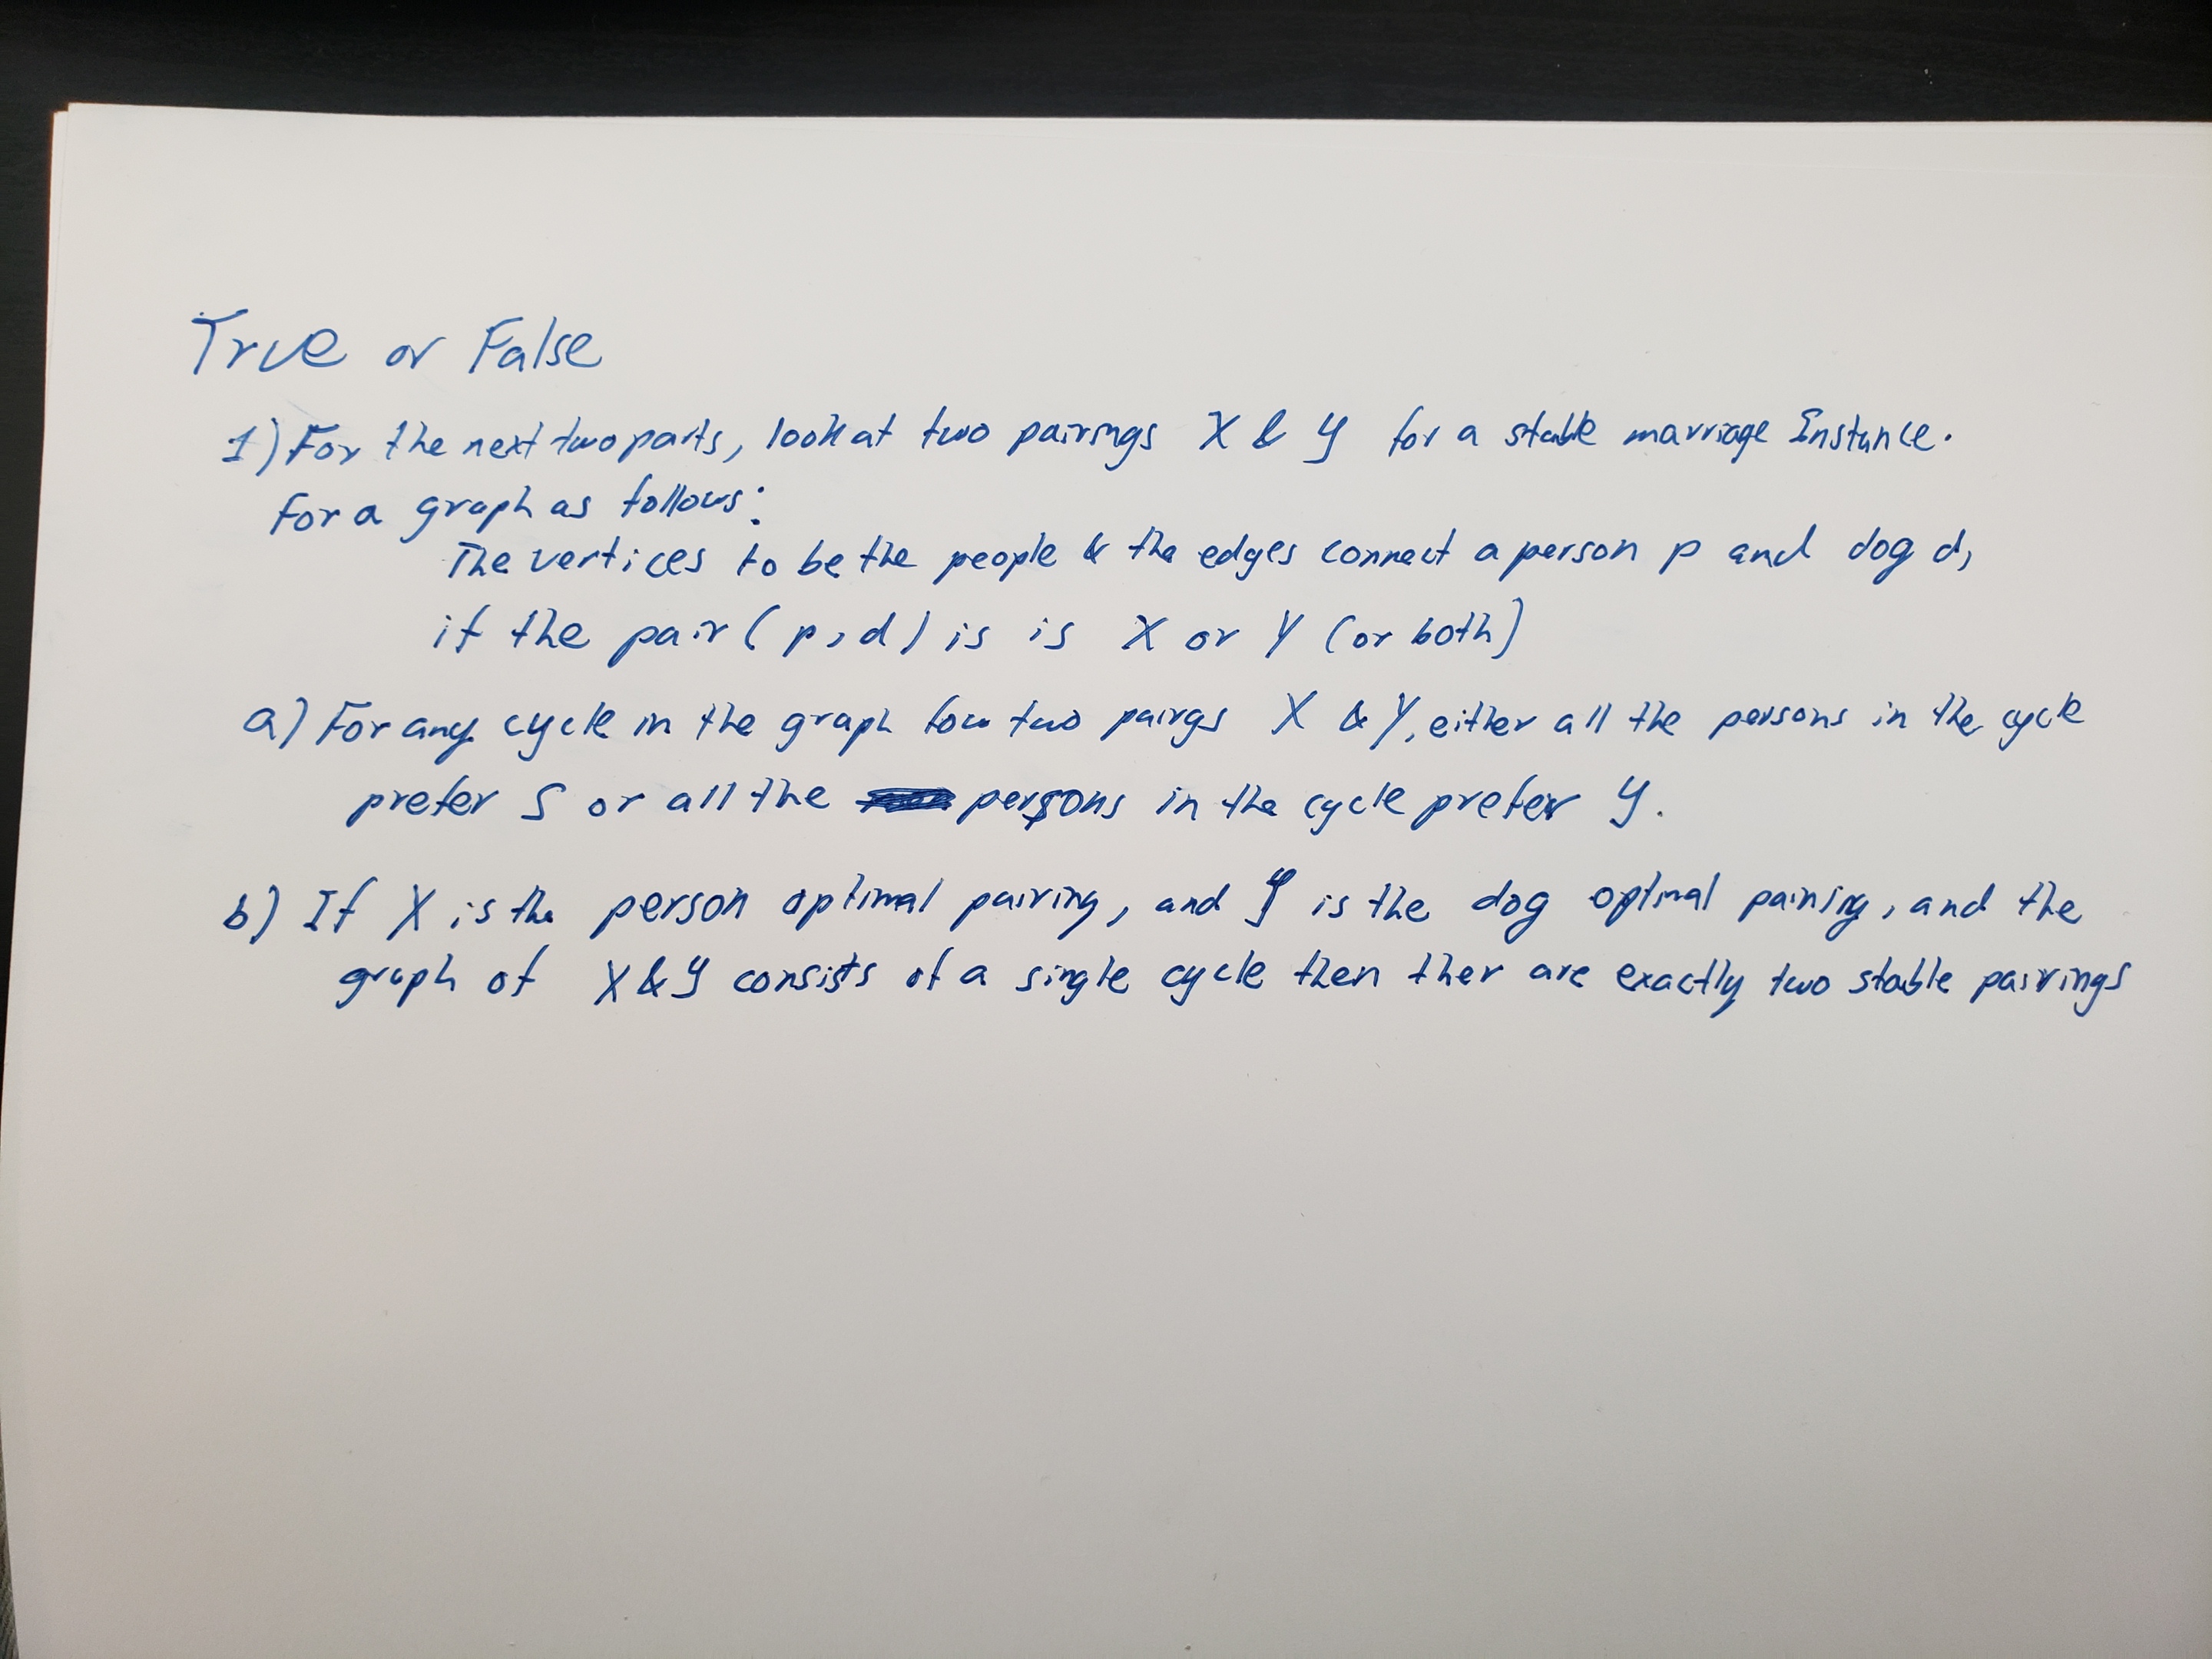 True or False
1) For the next two parts, look at two pairings X & Y for a stable marriage Instance.
For a graph as follows:
The vertices to be the people & the edges connect a person p and dog d,
if the pair (p, d) is is X or Y (or both)
a) For any cycle in the graph for two pairgs X & Y, either all the persons in the cycle
prefer S or all the persons in the cycle prefer Y.
b) If X is the person optimal pairing, and Y is the dog optimal pairing, and the
graph of X & Y consists of a single cycle then ther are exactly two stable pairings